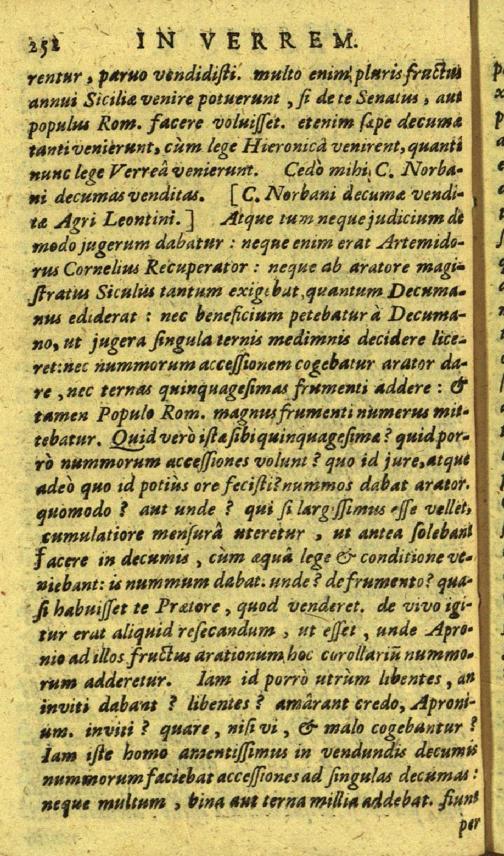 252 IN VERREM.
rentur, paruo vendidisti. multo enim pluris fructus
annui Siciliæ venire potuerunt, si de te Senatus, aut
populus Rom. facere voluisset. etenim sæpe decumæ
tanti venierunt, cùm lege Hieronicâ venirent, quanti
nunc lege Verreâ venierunt. Cedò mihi C. Norba-
ni decumas venditas. [C. Norbani decumæ vendi-
tæ Agri Leontini.] Atque tum neque judicium de
modo jugerum dabatur : neque enim erat Artemido-
rus Cornelius Recuperator : neque ab aratore magi-
stratus Siculus tantum exigebat, quantum Decuma-
nus ediderat : nec beneficium petebatur à Decuma-
no, ut jugera singula ternis medimnis decidere lice-
ret: nec nummorum accessionem cogebatur arator da-
re, nec ternas quinquagesimas frumenti addere : &
tamen Populo Rom. magnus frumenti numerus mit-
tebatur. Quid verò istæ sibi quinquagesimæ ? quid por-
rò nummorum accessiones volunt ? quo id jure, atque
adeò quo id potiùs ore fecisti? nummos dabat arator.
quomodo ? aut unde ? qui si largissimus esse vellet,
cumulatiore mensurâ uteretur, ut antea solebant
facere in decumis, cùm æquâ lege & conditione ve-
niebant: is nummum dabat. unde? de frumento? qua-
si habuisset te Prætore, quod venderet. de vivo igi-
tur erat aliquid resecandum, ut esset, unde Apro-
nio ad illos fructus arationum hoc corollariū nummo-
rum adderetur. Iam id porrò utrum libentes, an
inviti dabant ? libentes ? amârant credo, Aproni-
um. inviti ? quare, nisi vi, & malo cogebantur ?
Iam iste homo amentissimus in vendundis decumis
nummorum faciebat accessiones ad singulas decumas :
neque multum, bina aut terna millia addebat. fiunt
per